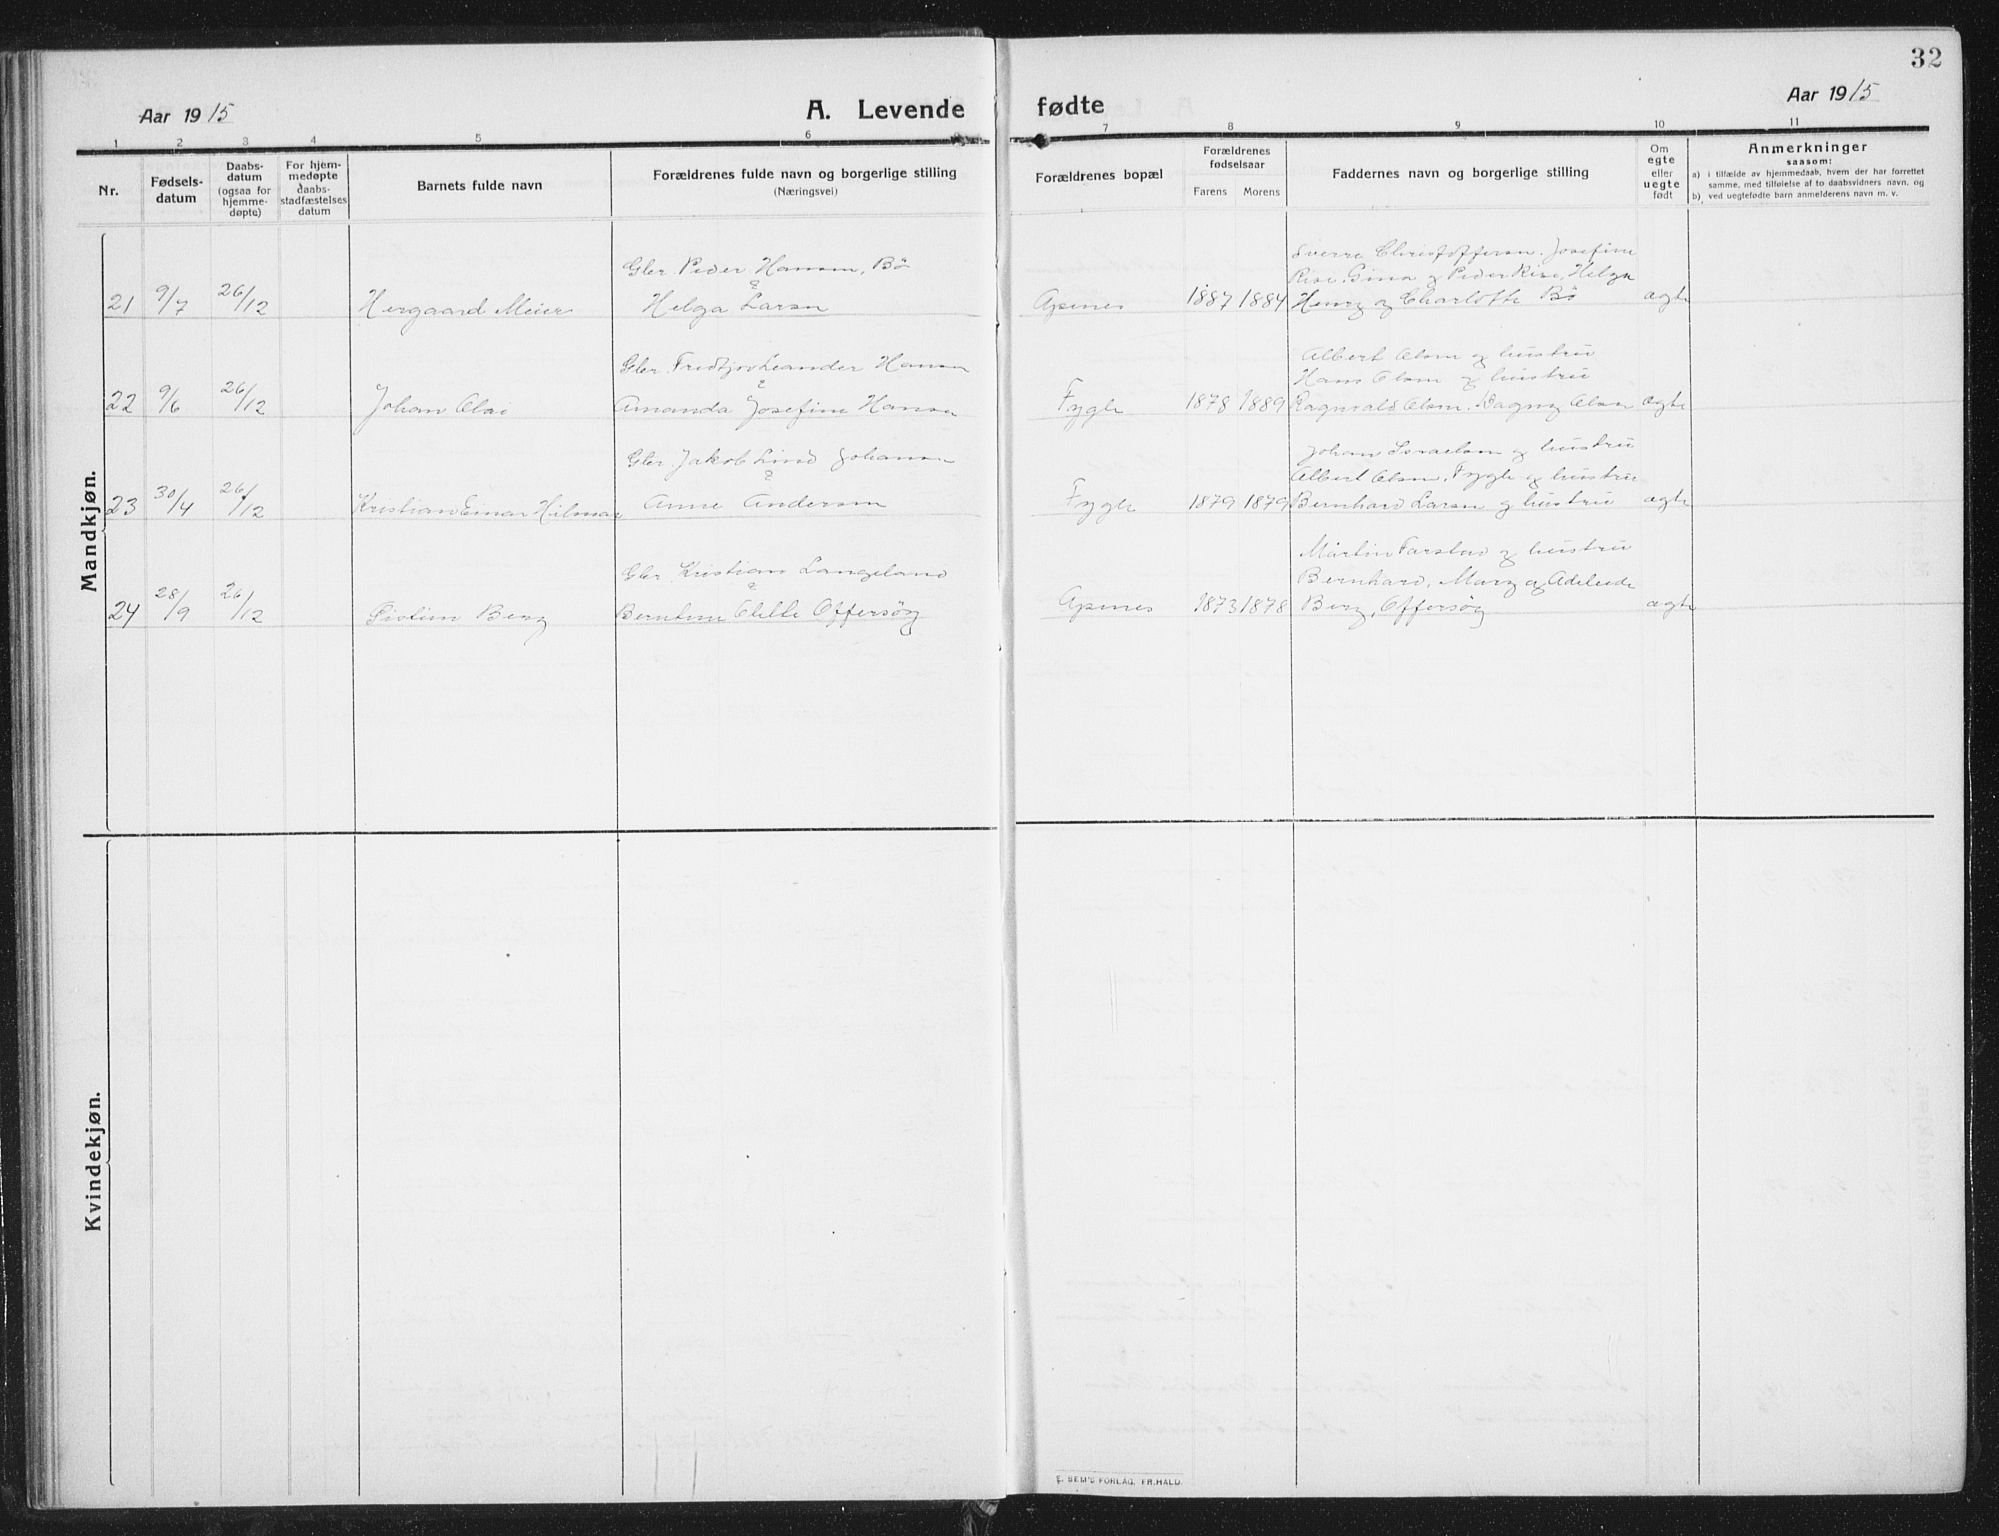 32
Aar 1915
A. Levende fødte
Aar 1915
1 2 3 4 5 6 7 8 9 10 11
Nr.
Fødsels-
datum
Daabs-
datum
(ogsaa for
hjemme-
døpte)
For hjem-
medøpte
daabs-
stadfæstelses
datum
Barnets fulde navn
Forældrenes fulde navn og borgerlige stilling
(Næringsvei)
Forældrenes bopæl
Forældrenes
fødselsaar
Farens Morens
Faddernes navn og borgerlige stilling
Om
egte
eller
uegte
født
Anmerkninger
saasom:
a) i tilfælde av hjemmedaab, hvem der har forrettet
samme, med tilføielse af to daabsvidners navn, og
b) ved uegtefødte barn anmelderens navn m. v.
Mandkjøn.
Gbr. Peder Hansen, Bö
Sverre Christoffersn. Josefine
Rise, Gina og Peder Rise, Helga
21 9/7 26/12 Hergaard Meier Helga Larsn 1887 1884 Henry og Charlotte Bö ægte
Gbr. Fredtjov Leander Hansn
Albert Olsen og hustru
Hans Olsen og hustru
22 9/6 26/12 Johan Olai Amanda Josefine Hansn Fygle 1878 1889 Ragnvald Olsen. Dagny Olsen ægte
Gbr Jakob Lind Johansn
Johan Israelsen og hustru
Albert Olsen, Fygle og hustru
23 30/4 26/12 Kristian Einar Hilmar Anne Andersen Fygle 1879 1879 Bernhard Larsn og hustru ægte
Gbr. Kristian Langeland
Martin Farstad og hustru
Bernhard, Mary og Adeleide
24 28/9 26/12 Berg Olette Offersøy 1873 1878 Berg, Offersøy ægte
Kvindekjøn.
E. SEM'S FORLAG, FR.HALD.